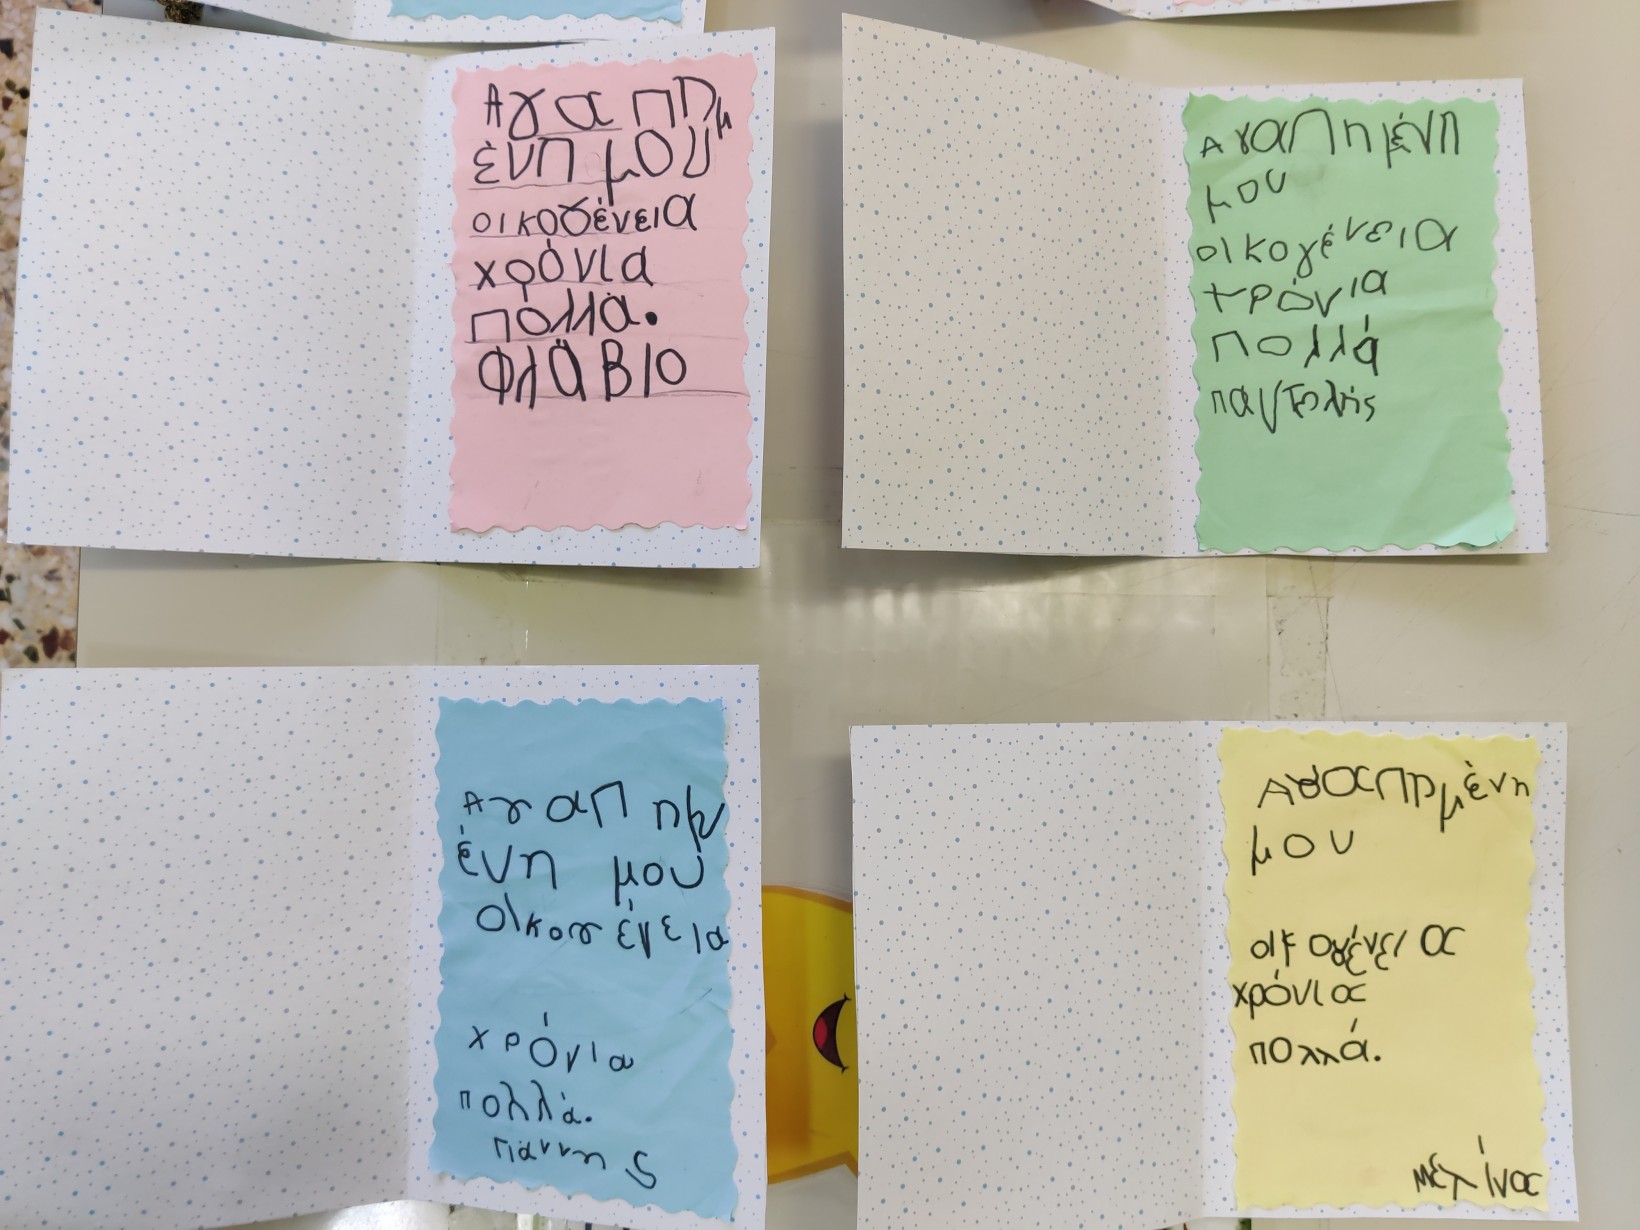 Αγαπημ
ένη μου
οικογένεια
χρόνια
πολλά.
Φλάβιο
Αγαπημένη
μου
οικογένεια
χρόνια
πολλά
παντελής
Αγαπημ
ένη μου
οικογένεια
χρόνια
πολλά.
Γιάννης
Αγαπημένη
μου
οικογένεια
χρόνια
πολλά.
Μελίνα